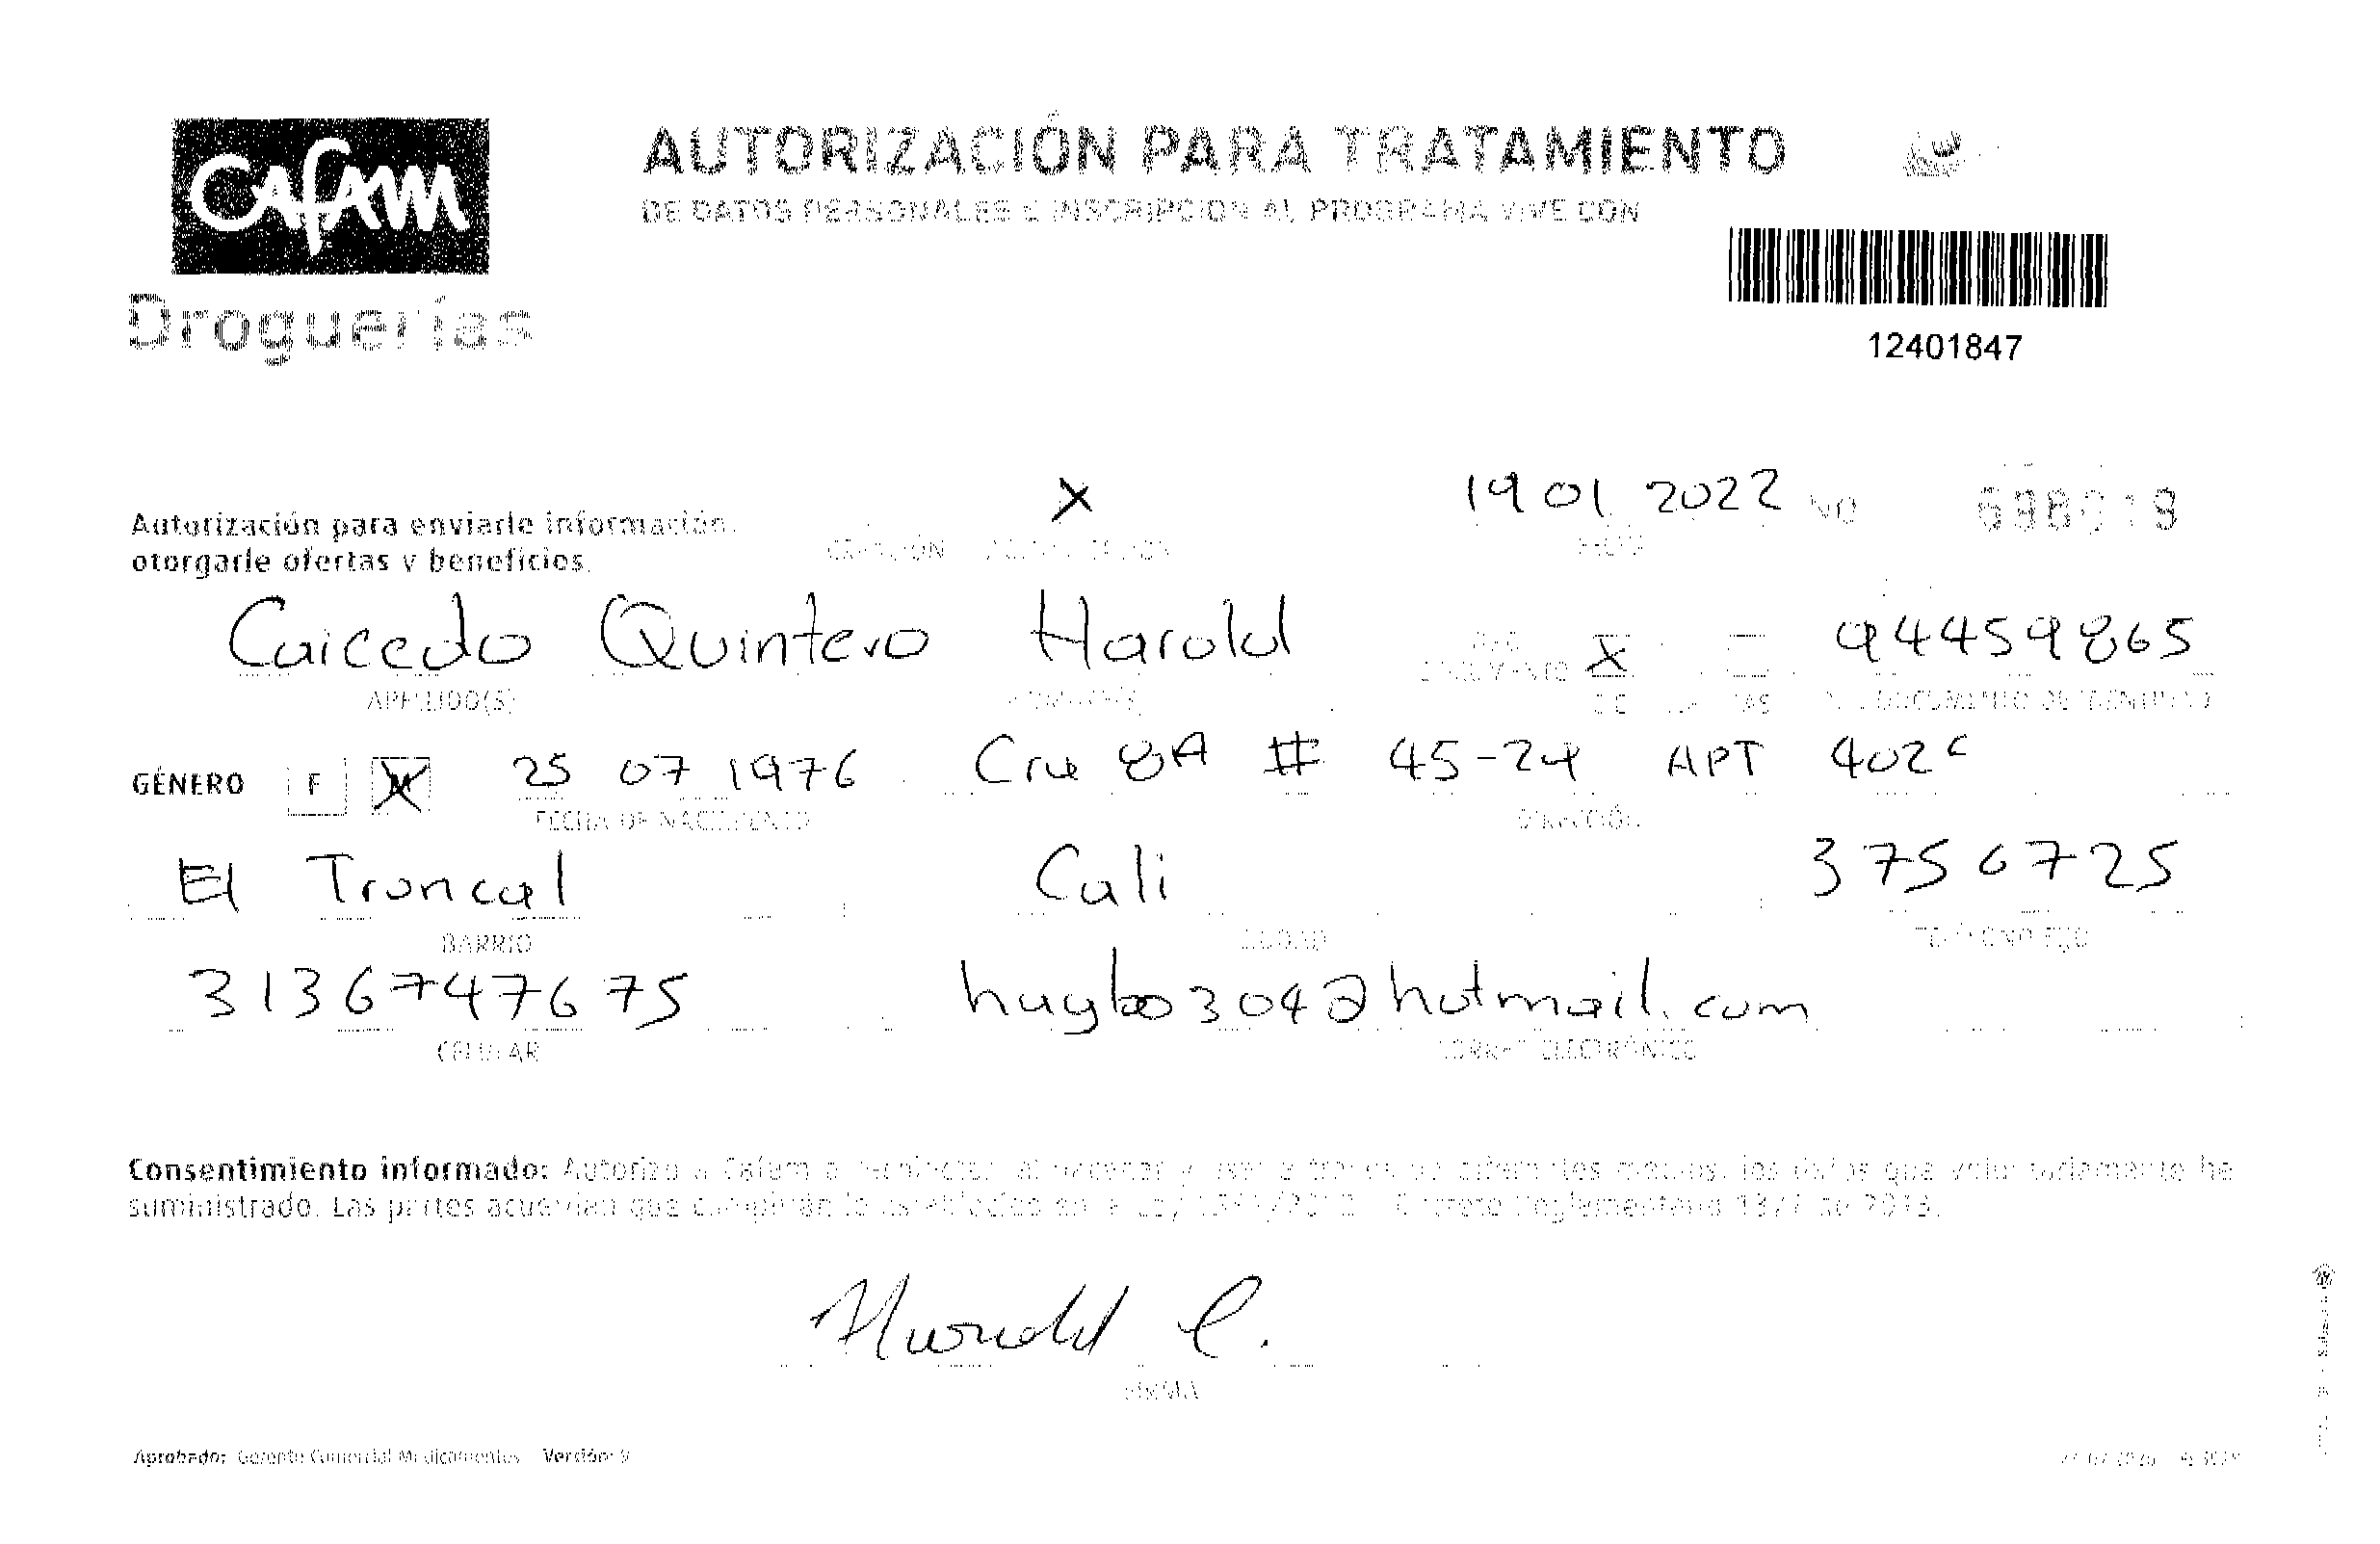 Cafam
Droguerías
AUTORIZACIÓN PARA TRATAMIENTO
DE DATOS PERSONALES E INSCRIPCION AL PROGRAMA VIVE CON
12401847
Autorización para enviarle información,
otorgarle ofertas y beneficios.
X
CREACIÓN
19 01 2022
FECHA
NO
Caicedo Quintero Harold
X
94459865
APELLIDO(S)
NOMBRE(S)
DOCUMENTO
C.C.
DOCUMENTO DE IDENTIDAD
GÉNERO F M
25 07 1976
Cra 8A # 45-24 APT 402C
FECHA DE NACIMIENTO
DIRECCIÓN
El Troncal
Cali
3750725
BARRIO
CIUDAD
TELÉFONO FIJO
3136747675
hugbo304@hotmail.com
CELULAR
CORREO ELECTRÓNICO
Consentimiento informado: Autorizo a Cafam a recolectar, almacenar y usar a través de diferentes medios, los datos que voluntariamente he
suministrado. Las partes acuerdan que cumplirán lo establecido en la Ley 1581/2012 Decreto Reglamentario 1377 de 2013.
Harold C.
FIRMA
Aprobado: Gerente Comercial Medicamentos Versión: 9